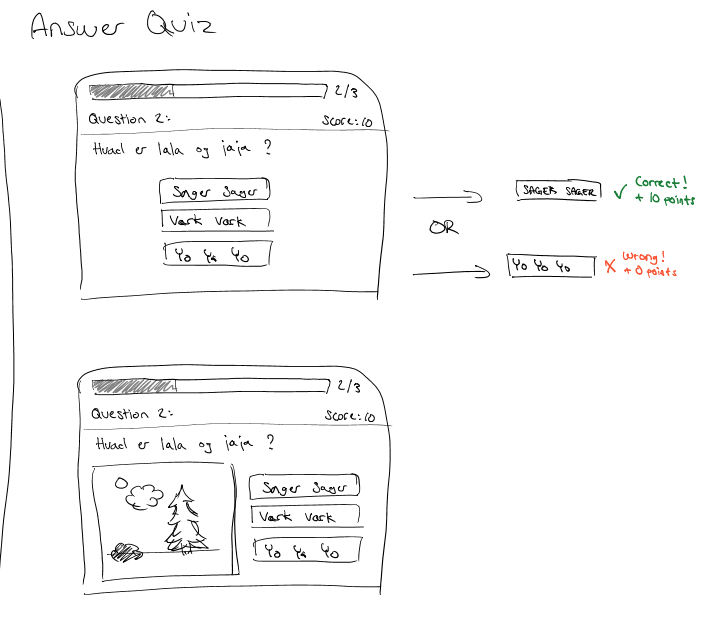 Answer Quiz
2/3
Question 2:
Score:10
Hvad er lala og jaja ?
Sager Sager
Vark Vark
Yo Yo Yo
OR
SAGER SAGER
Correct!
+ 10 points
Yo Yo Yo
Wrong!
+ 0 points
2/3
Question 2:
Score:10
Hvad er lala og jaja ?
Sager Sager
Vark Vark
Yo Yo Yo